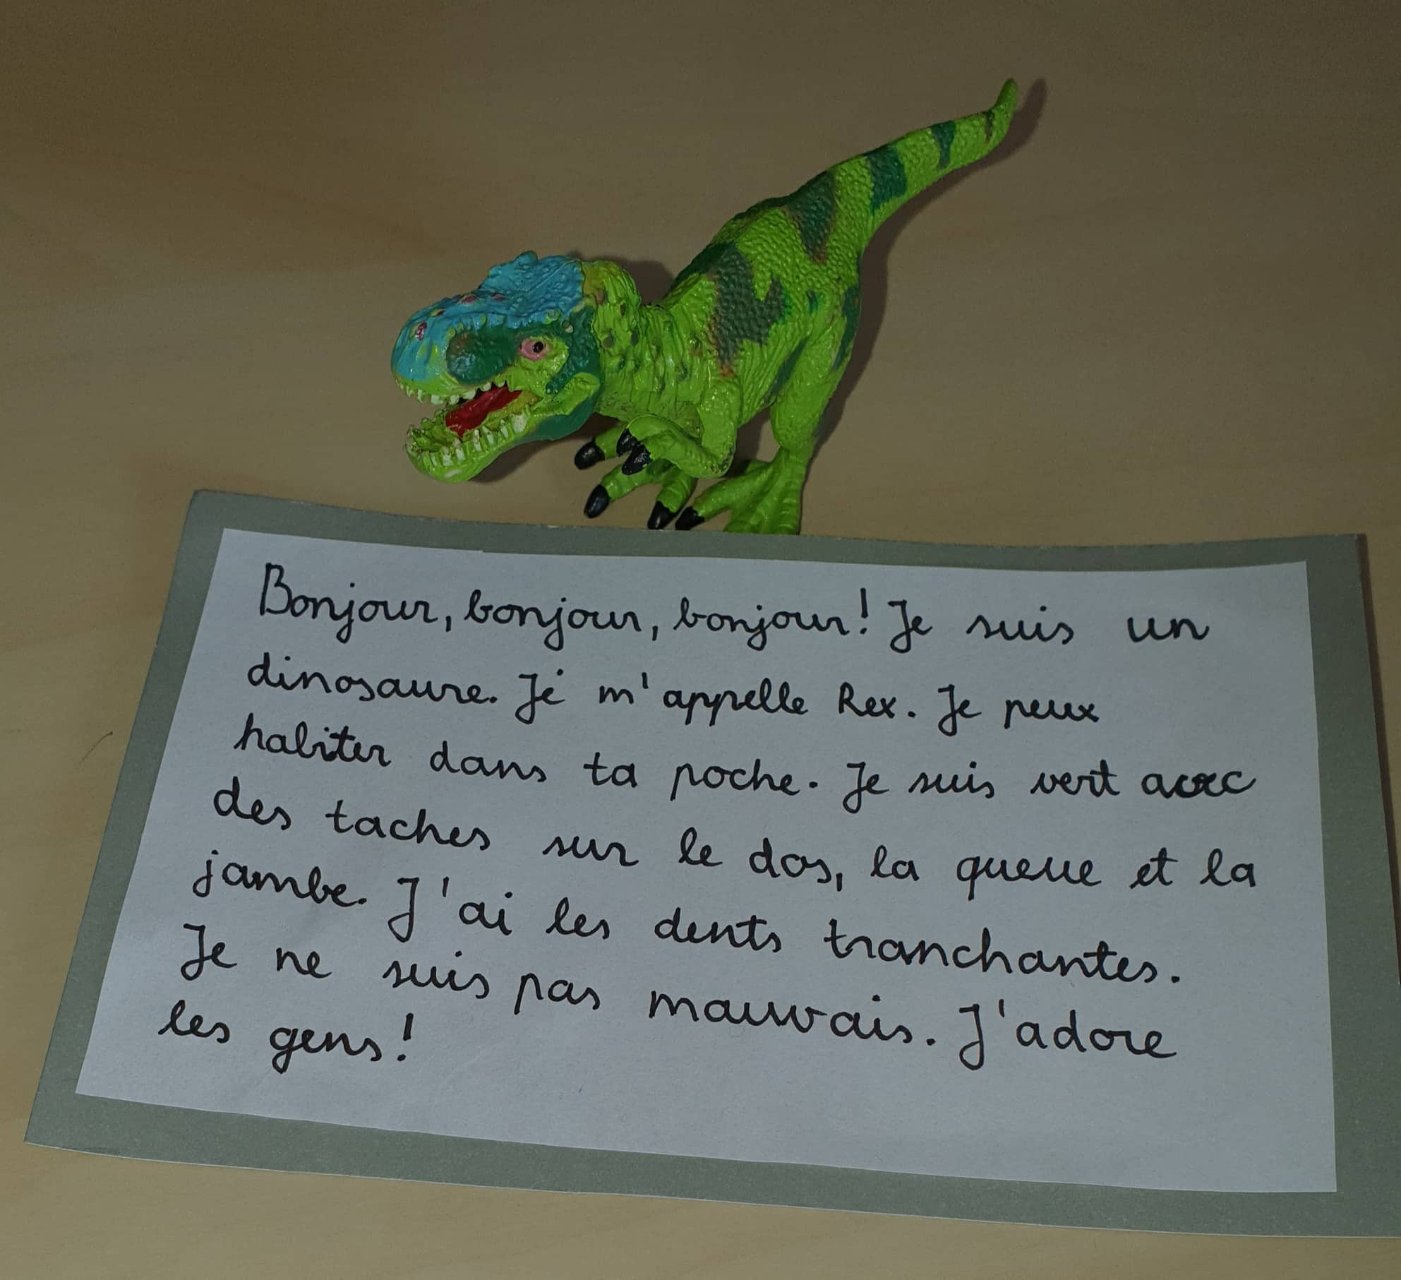 Bonjour, bonjour, bonjour! Je suis un
dinosaure. Je m'appelle Rex. Je peux
habiter dans ta poche. Je suis vert avec
des taches sur le dos, la queue et la
jambe. J'ai les dents tranchantes.
Je ne suis pas mauvais. J'adore
les gens!